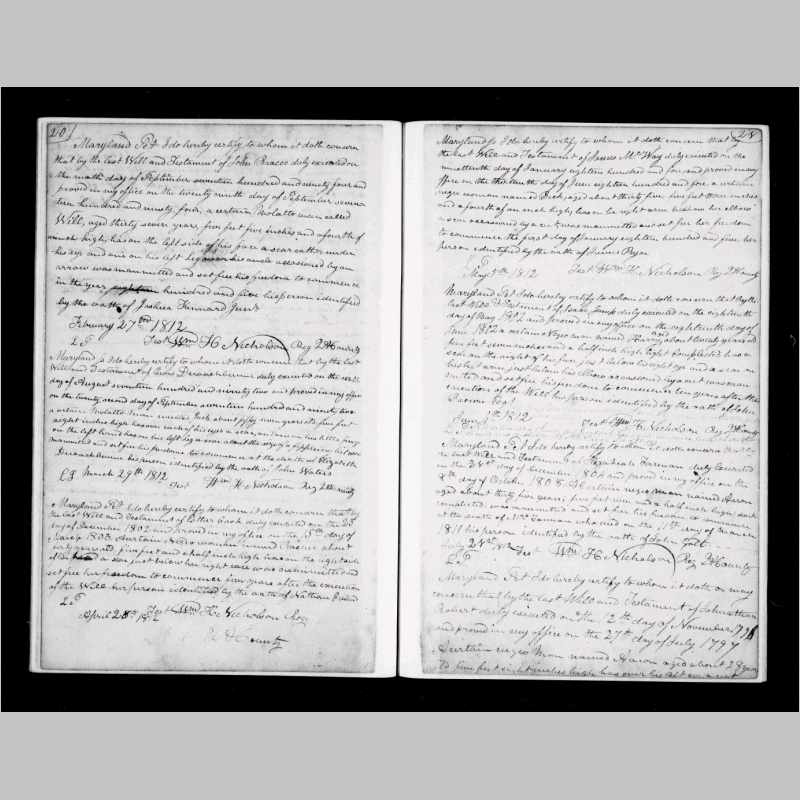 20
Maryland Sct I do hereby certify to whom it doth concern
that by the last Will and Testament of John Bracco duly executed on
the ninth day of September seventeen hundred and ninety four and
proved in my office on the twenty ninth day of September seven
teen hundred and ninety four, a certain Molatto man called
Will, aged thirty seven years, five feet five inches and a fourth of
an inch high, has on the left side of his face a scar rather under
his eye and one on his left leg near his ancle occasioned by an
arrow was manumitted and set free his freedom to commence
in the year hundred and five his person identified
by the oath of Joshua Kennard Junr
February 27th 1812
Test Wm H Nicholson Reg Q A County
Maryland Sc I do hereby certify to whom it doth concern that by the last
Will and Testament of duly executed on the
day of August seventeen hundred and ninety two and proved in my office
on the twenty second day of September seventeen hundred and ninety two
a certain Molatto man named Jack about fifty seven years old, five feet
eight inches high has near each of his eyes a scar, and one on his little finger
on the left hand has on his left leg a scar about the size of a
manumitted and set free his freedom to commence at the death of Elizabeth
his person identified by the oath of John Waters
March 29th 1812
Test Wm H Nicholson Reg Q A County
Maryland Sct I do hereby certify to whom it doth concern that by
the last Will and Testament of Esther Cook duly executed on the 23
day of December 1802 and proved in my office on the 15th day of
March 1803 A certain Negro woman named about
years old, five feet and a half inch high has on the right side
of her a scar just below her right was manumitted and
set free her freedom to commence five years after the execution
of the Will her person identified by the oath of Nathan
April 28th 1812
Test Wm H Nicholson Reg
Q A County
Maryland Sc I do hereby certify to whom it doth concern that by
the last Will and Testament of James McWay duly executed on the
nineteenth day of January eighteen hundred and five and proved in my
office on the thirteenth day of June eighteen hundred and five a certain
negro woman named Beck, aged about thirty five years, five feet three inches
and a fourth of an inch high, has on her right arm below her elbow
a scar occasioned by a cut was manumitted and set free her freedom
to commence the first day of January eighteen hundred and five her
person identified by the oath of James Ryan
May 7th 1812
Test Wm H. Nicholson Reg Q A County
Maryland Sct I do hereby certify to whom it doth concern that by the
last Will & Testament of Isaac duly executed on the eighteenth
day of May 1802 and proved in my office on the eighteenth day of
June 1802 a certain negro man named Harry, about twenty years old
five feet seven inches and a half inch high light complected has a
scar on the right of his face, just below his right eye and a scar on
his left arm just below his elbow occasioned by a cut was manu
mitted and set free his freedom to commence ten years after the
execution of the Will his person identified by the oath of John
1812
Test Wm H Nicholson Reg Q A County
Maryland Sct I do hereby certify to whom it doth concern that by
the last Will and Testament of Foreman duly executed
on the 24th day of December 1804 and proved in my office on the
8th day of October 1808 A certain negro man named Aaron
aged about thirty five years, five feet nine and a half inch high, dark
complected was manumitted and set free his freedom to commence
at the death of Mrs who died on the 11th day of March
1811 his person identified by the oath of John
Test Wm H Nicholson Reg Q A County
Maryland Sct I do hereby certify to whom it doth or may
concern that by the last Will and Testament of Johnathan
Robert duly executed on the 12th day of November 1796
and proved in my office on the 27th day of July 1797
A certain negro Man named Aaron aged about 28 years
five feet eight inches high, has over his left eye a